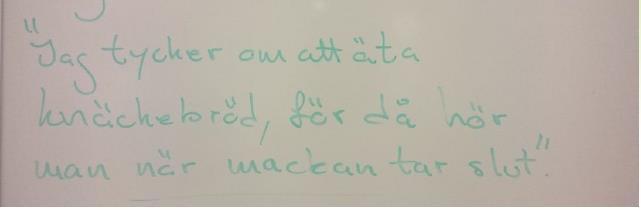 "Jag tycker om att äta
knäckebröd, för då hör
man när mackan tar slut".